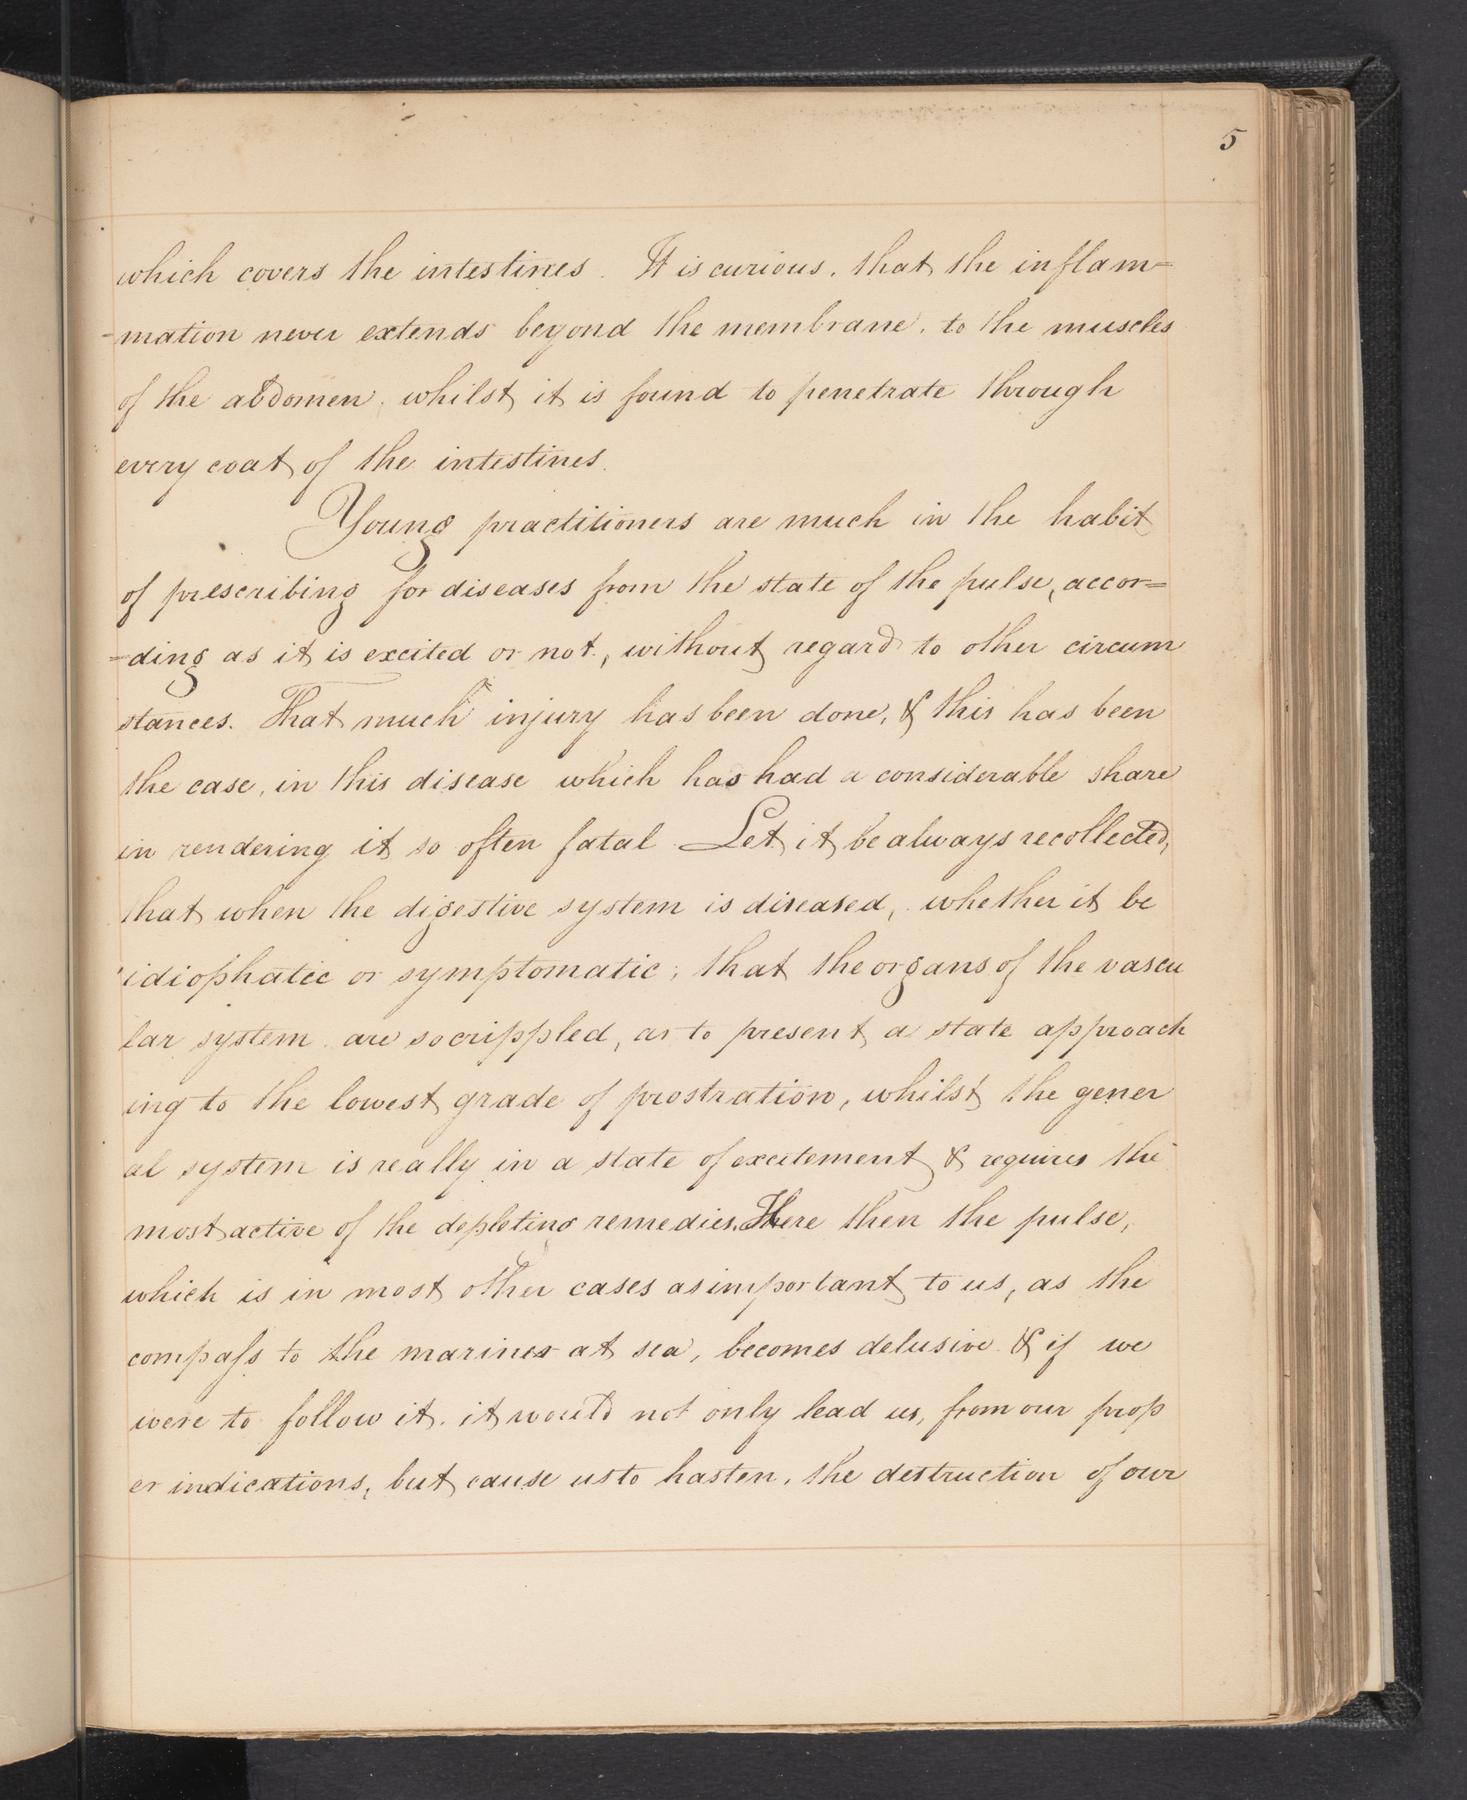 5
which covers the intestines. It is curious, that the inflam=
-mation never extends beyond the membrane, to the muscles
of the abdomen, whilst it is found to penetrate through
every coat of the intestines.
Young practitioners are much in the habit
of prescribing for diseases from the state of the pulse, accor=
=ding as it is excited or not, without regard to other circum
stances. That much injury has been done, & this has been
the case, in this disease which has had a considerable share
in rendering it so often fatal. Let it be always recollected,
that when the digestive system is diseased, whether it be
idiophatic or symptomatic; that the organs of the vascu
lar system are so crippled, as to present a state approach
ing to the lowest grade of prostration, whilst the gener
al system is really in a state of excitement & requires the
most active of the depleting remedies. Here then the pulse,
which is in most other cases as important to us, as the
compaſs to the mariner at sea, becomes delusive & if we
were to follow it, it would not only lead us, from our prop
er indications, but cause us to hasten, the destruction of our